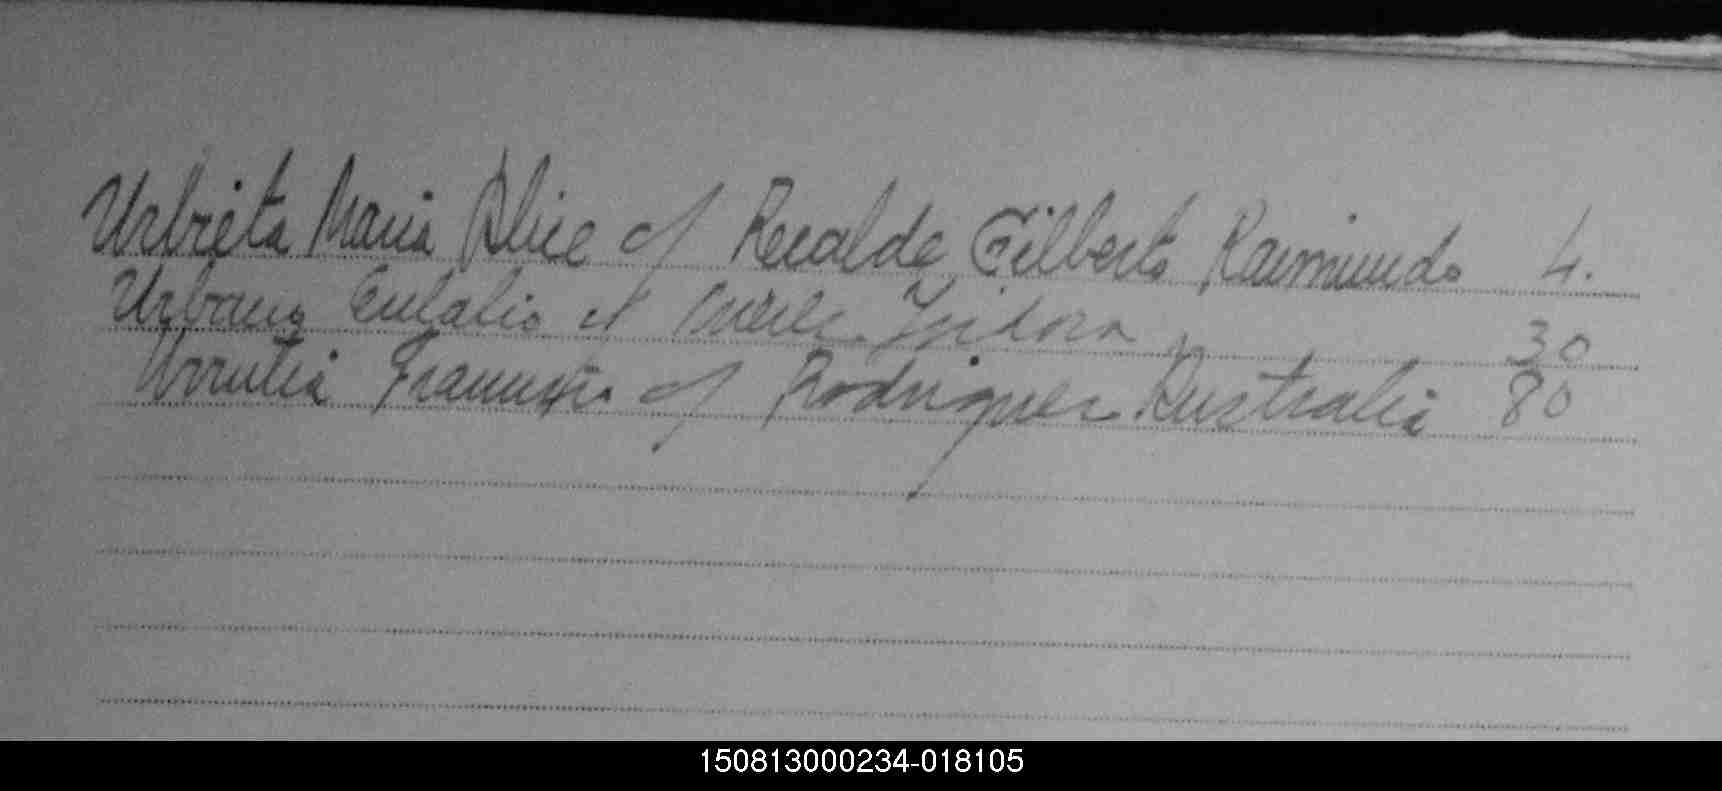 Urbieta Maria Alice c/ Recalde Gilberto Raimundo 4.
Urbano Eulalio c/ Isidora 30
Urrutia Francisco c/ Rodriguez Australia 80
150813000234-018105